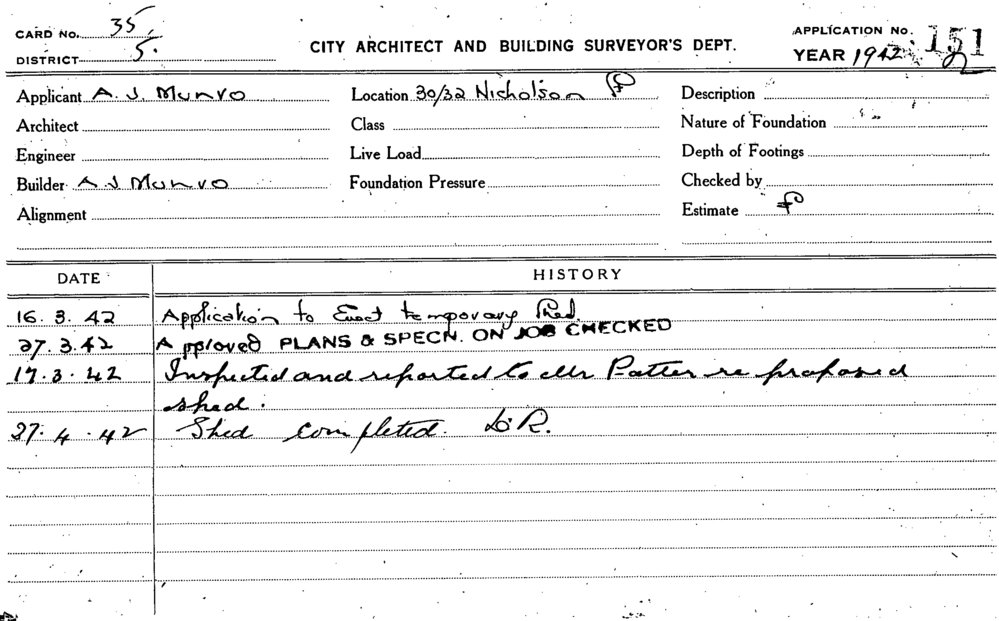 CARD No. 35
DISTRICT 5.
CITY ARCHITECT AND BUILDING SURVEYOR'S DEPT.
APPLICATION No. 151
YEAR 1942
Applicant A. J. Munro
Location 30/32 Nicholson
Description
Architect
Class
Nature of Foundation
Engineer
Live Load
Depth of Footings
Builder A J Munro
Foundation Pressure
Checked by
Alignment
Estimate
DATE
HISTORY
16. 3. 42 Application to Erect temporary Shed.
27. 3. 42 Approved PLANS & SPECN. ON JOB CHECKED
17. 3. 42 Inspected and reported to Mr re proposed
shed.
27. 4. 42 Shed completed. R.